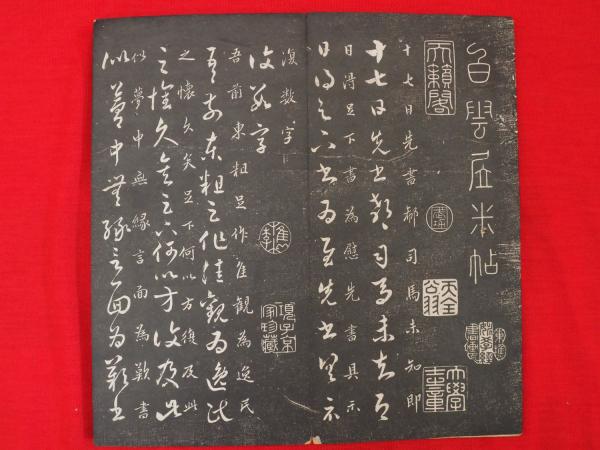 白雲居米帖
天籟閣
十七日先書郗司馬未知即
十七日先書郗司馬未去即
日得足下書為慰先書具示
日得足下書為慰先書以具示
復數字
復數字
項子京家珍藏
吾前東粗足作佳觀為逸民
吾前東粗足作佳觀為逸民
之懷久矣足下何以方復及此
之懷久矣足下何以方復及此
似夢中無緣言面為歎書
似夢中無緣言面為歎書